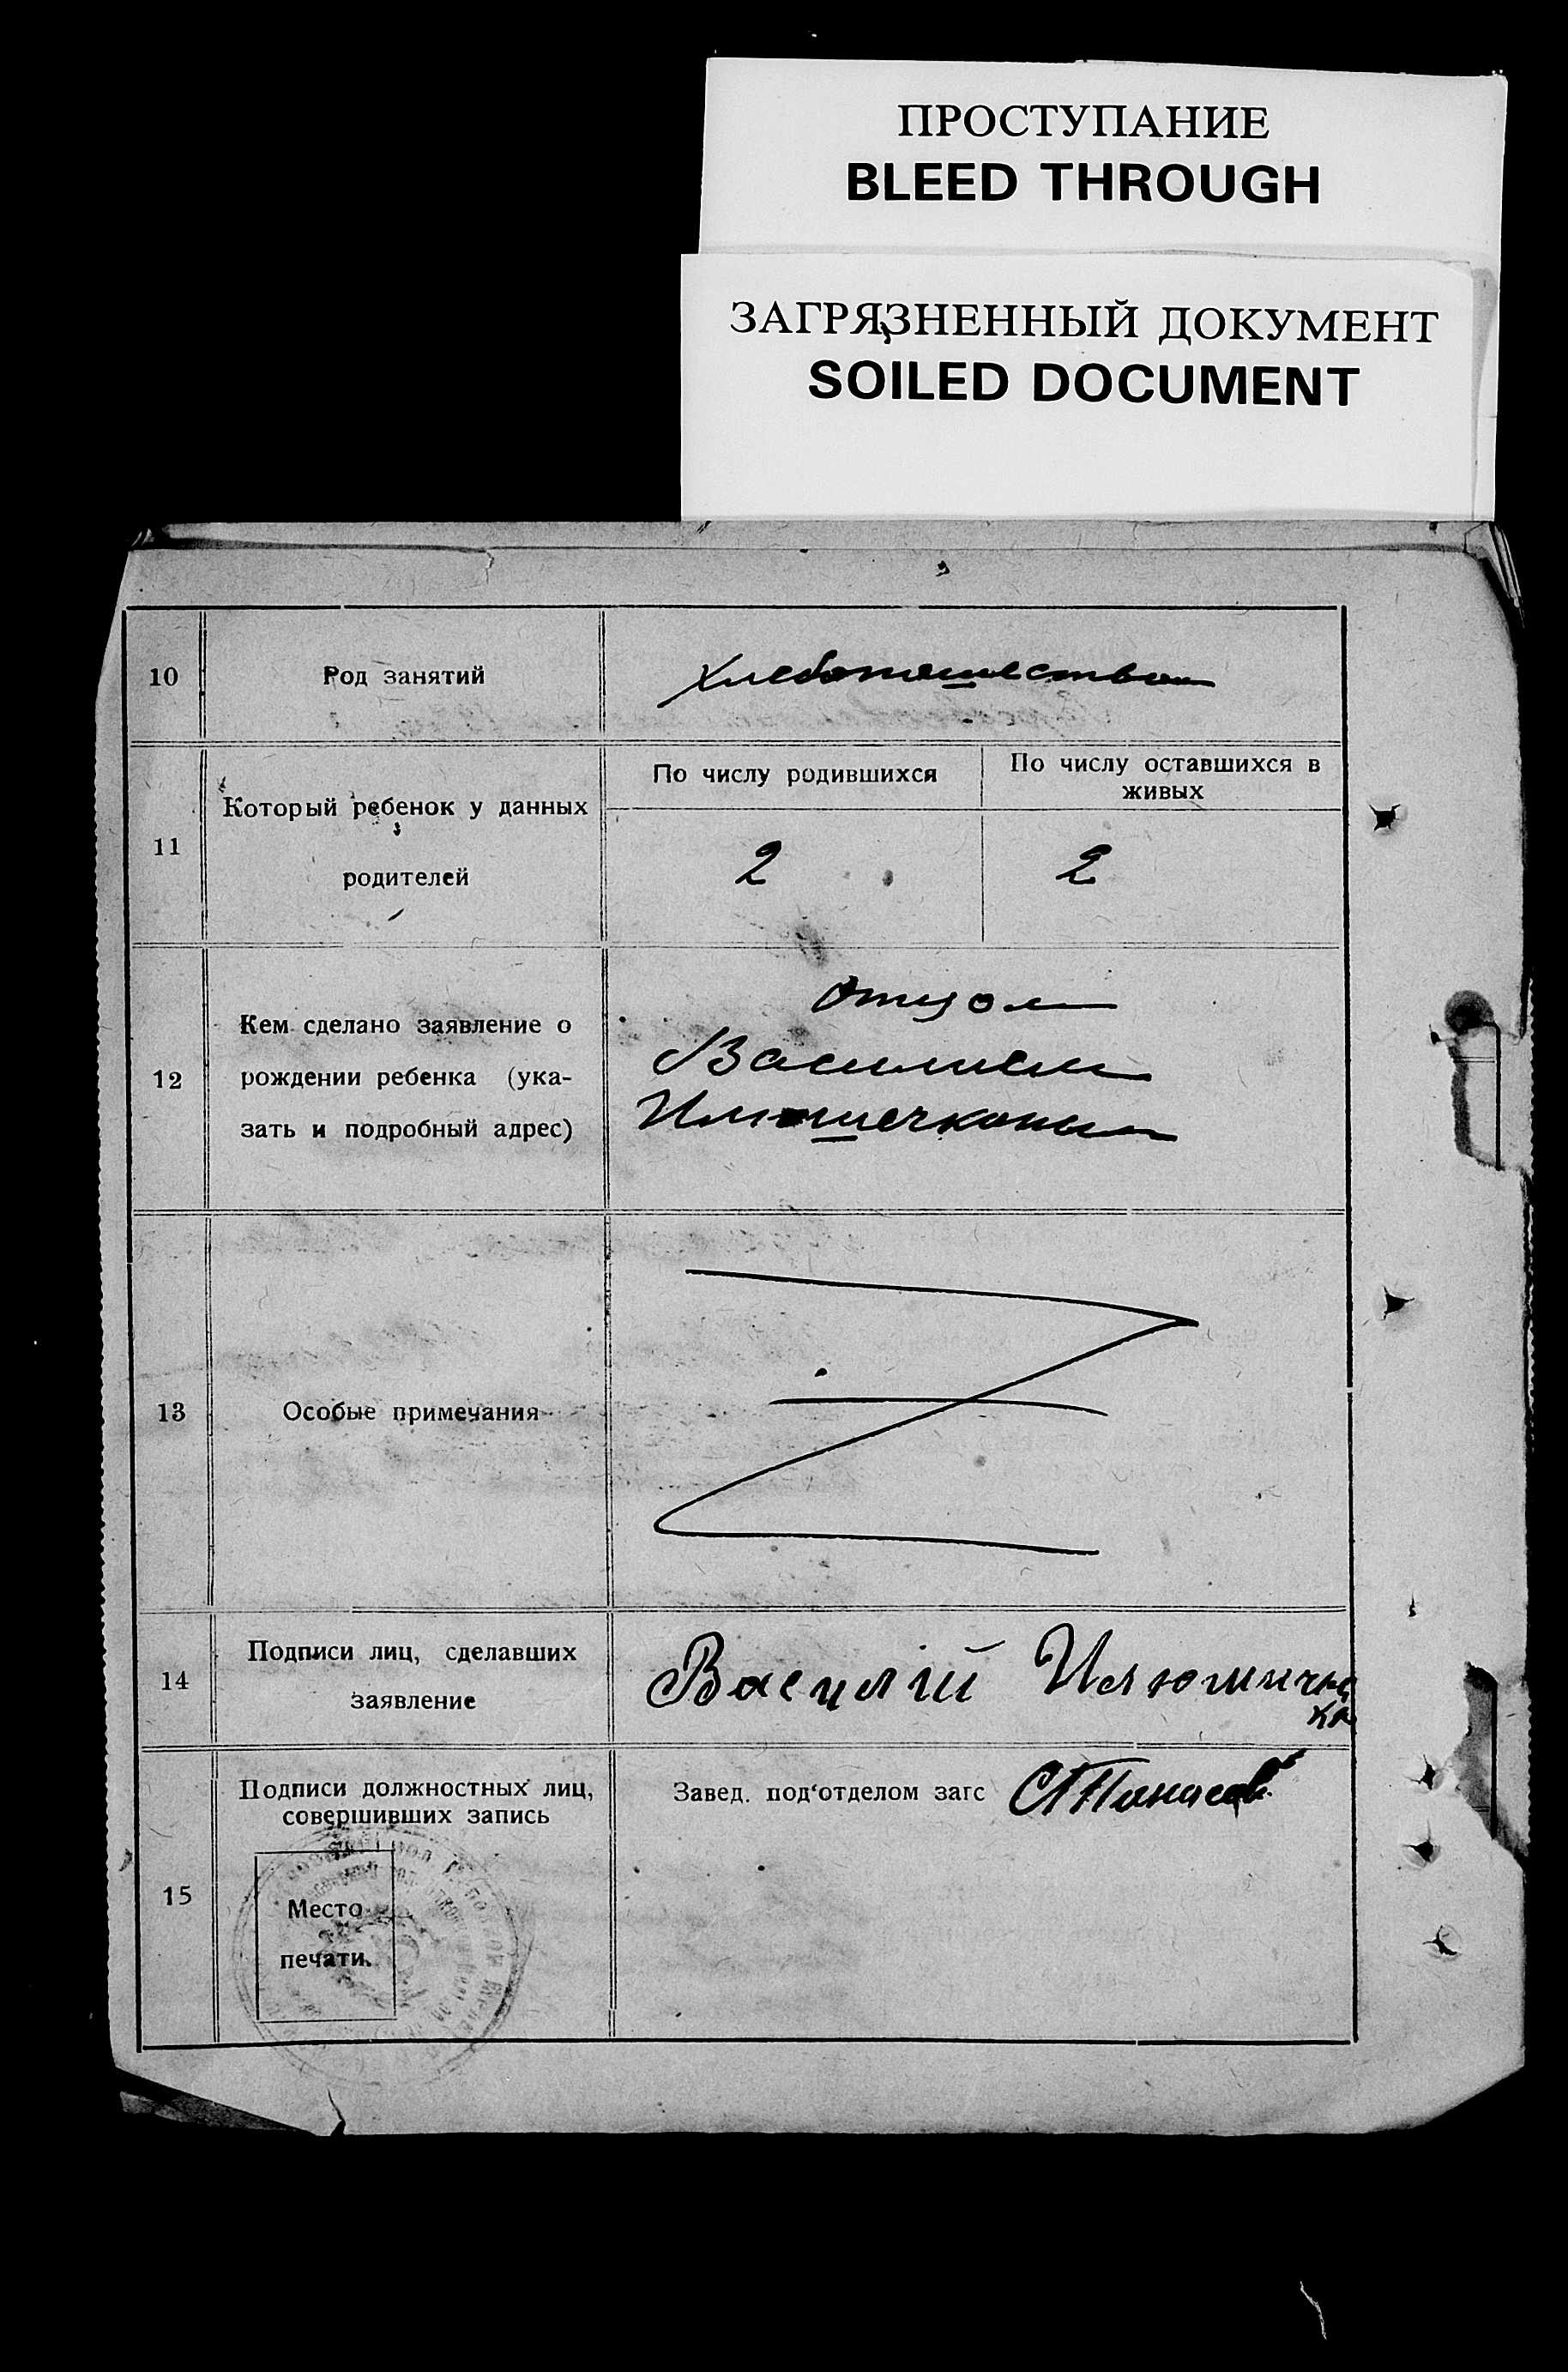 ПРОСТУПАНИЕ
BLEED THROUGH
ЗАГРЯЗНЕННЫЙ ДОКУМЕНТ
SOILED DOCUMENT
10
Род занятий
хлебопашество
11
Который ребенок у данных
родителей
По числу родившихся
2
По числу оставшихся в
живых
2
12
Кем сделано заявление о
рождении ребенка (ука-
зать и подробный адрес)
Отцом
Василием
Илюшечкиным
13
Особые примечания
14
Подписи лиц, сделавших
заявление
Василій Илюшичк
15
Подписи должностных лиц,
совершивших запись
Место
печати.
Завед. под'отделом загс